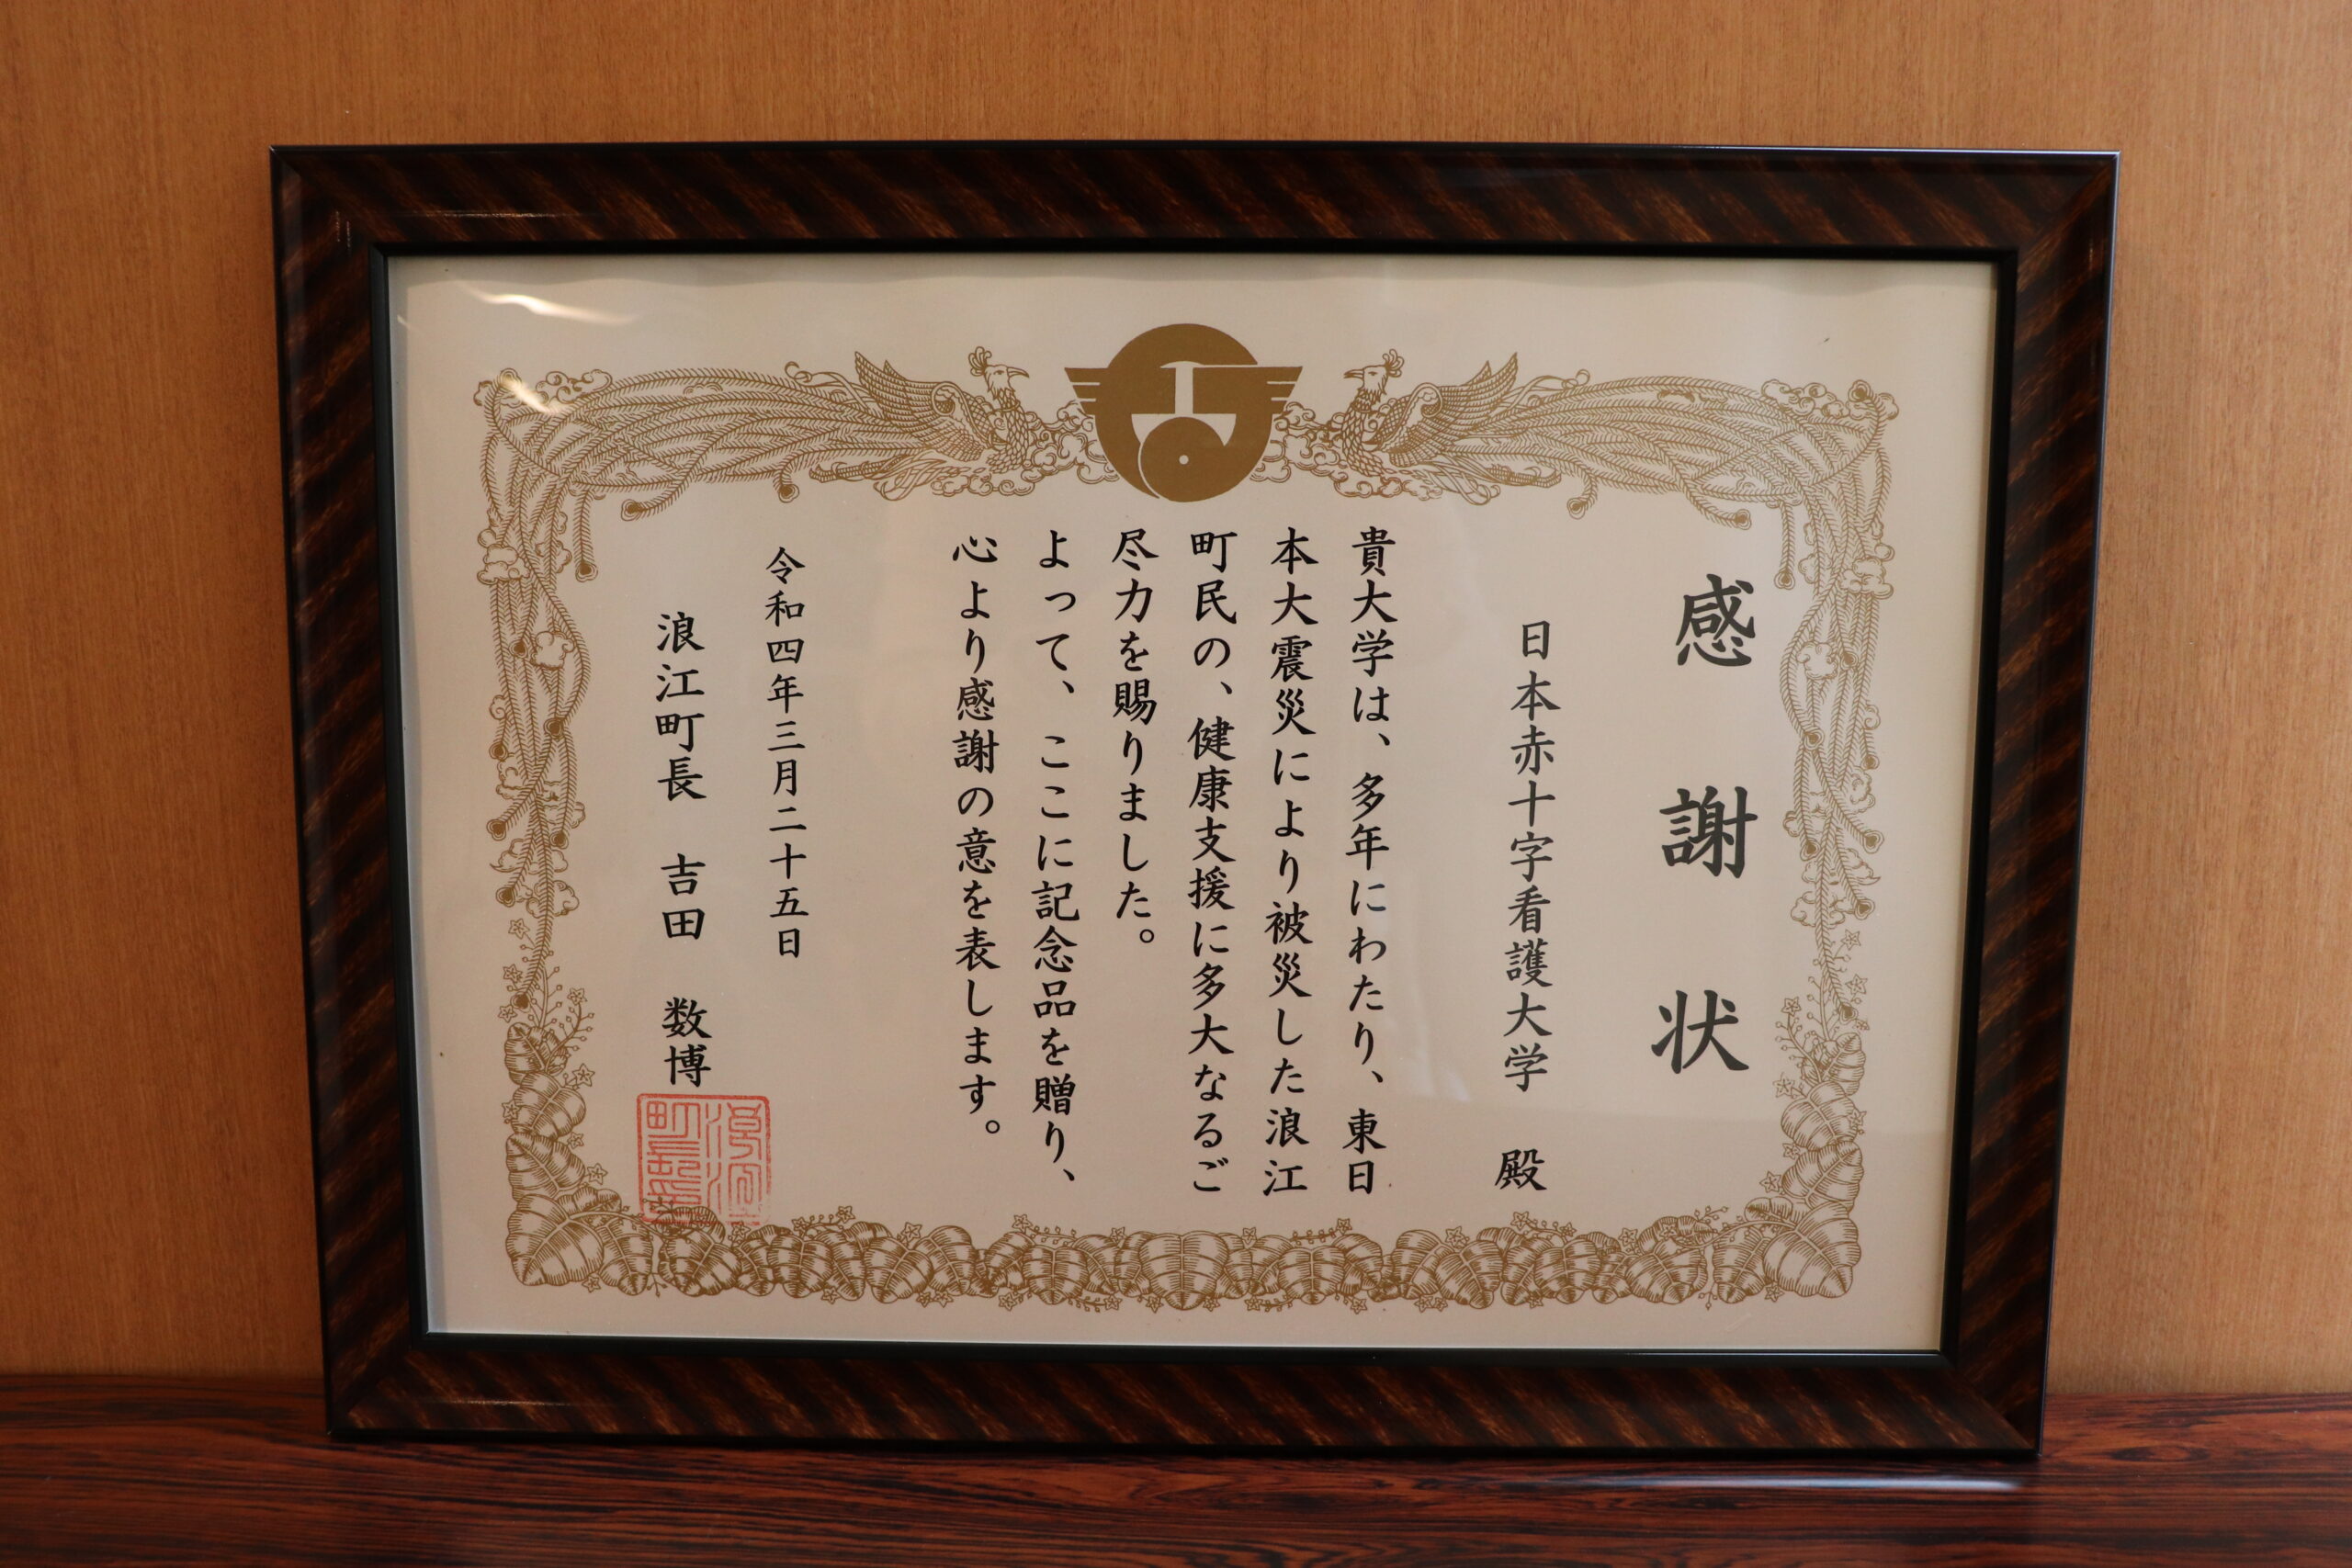 感謝状
日本赤十字看護大学 殿
貴大学は、多年にわたり、東日
本大震災により被災した浪江
町民の、健康支援に多大なるご
尽力を賜りました。
よって、ここに記念品を贈り、
心より感謝の意を表します。
令和四年三月二十五日
浪江町長 吉田 数博
浪江
町長印